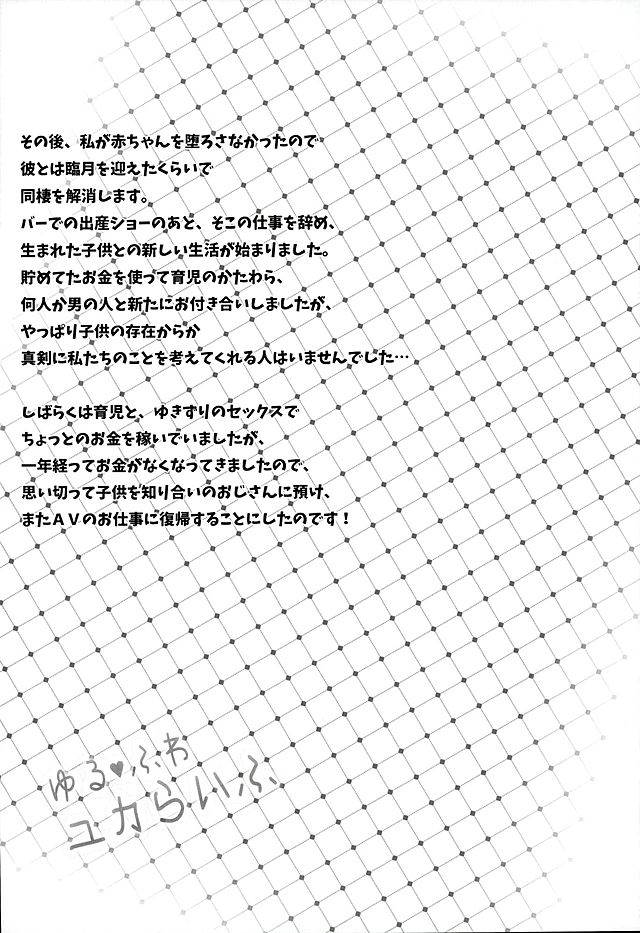 その後、私が赤ちゃんを堕ろさなかったので
彼とは臨月を迎えたくらいで
同棲を解消します。
バーでの出産ショーのあと、そこの仕事を辞め、
生まれた子供との新しい生活が始まりました。
貯めてたお金を使って育児のかたわら、
何人か男の人と新たにお付き合いしましたが、
やっぱり子供の存在からか
真剣に私たちのことを考えてくれる人はいませんでした…
しばらくは育児と、ゆきずりのセックスで
ちょっとのお金を稼いでいましたが、
一年経ってお金がなくなってきましたので、
思い切って子供を知り合いのおじさんに預け、
またAVのお仕事に復帰することにしたのです！
ゆる♥ふわ
ユカらいふ